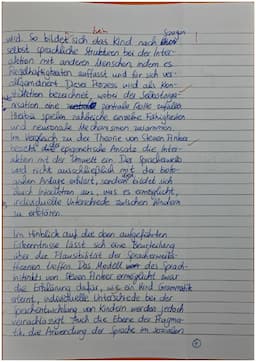 wird. So bildet sich das Kind nach
selbst sprachliche Strukturen bei der Inter-
aktion mit anderen Menschen, indem es
Regelhaftigkeiten auffasst und für sich ver-
allgemeinert. Dieser Prozess wird als Kon-
struktion bezeichnet, wobei der Selbstorga-
nisation eine zentrale Rolle zufällt.
Hierbei spielen zahlreiche einzelne Fähigkeiten
und neuronale Mechanismen zusammen.
Im Vergleich zu der Theorie von Steven Pinker
bezieht der epigenetische Ansatz die Inter-
aktion mit der Umwelt ein. Der Spracherwerb
wird nicht ausschließlich mit der
Anlage erklärt, sondern bildet sich
durch Interaktion aus, was es ermöglicht,
individuelle Unterschiede zwischen Kindern
zu erklären.
Im Hinblick auf die oben aufgeführten
Erkenntnisse lässt sich eine Beurteilung
über die Plausibilität der Spracherwerbs-
theorien treffen. Das Modell von des Sprach-
instinkts von Steven Pinker ermöglicht zwar
die Erklärung dafür, wie ein Kind Grammatik
erlernt, individuelle Unterschiede bei der
Sprachentwicklung von Kindern werden jedoch
vernachlässigt. Auch die Ebene der Pragma-
tik, die Anwendung der Sprache im sozialen